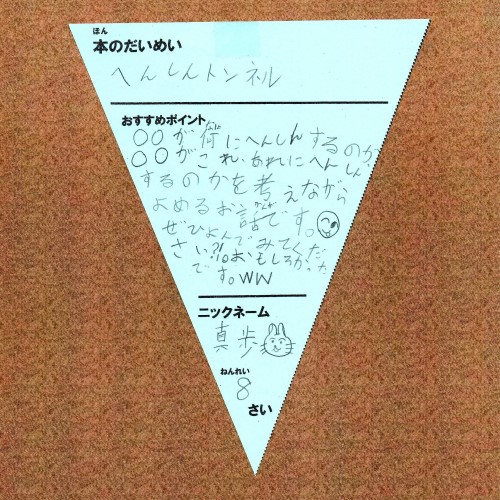 ほん
本のだいめい
へんしんトンネル
おすすめポイント
○○が何にへんしんするのか
○○がこれ、あれにへんしん
するのかを考えながら
よめるお話です。
ぜひよんでみてくだ
さい?!。おもしろかった
です。WW
ニックネーム
真歩
ねんれい
8
さい